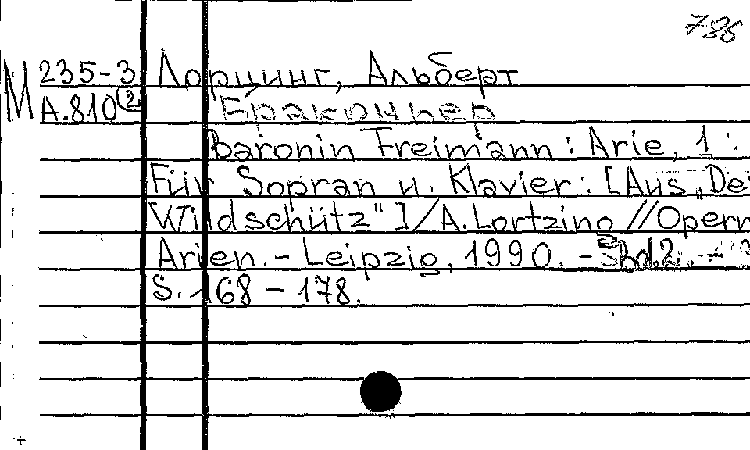 735
М 235-3 Лорцинг, Альберт
А.810(2) Браконьер
Baronin Freimann: Arie, 1:
Für Sopran u. Klavier: [Aus „De
Wildschütz"]/A.Lortzing//Opern
Arien.-Leipzig, 1990.-Bd.2.-
S. 168-178.